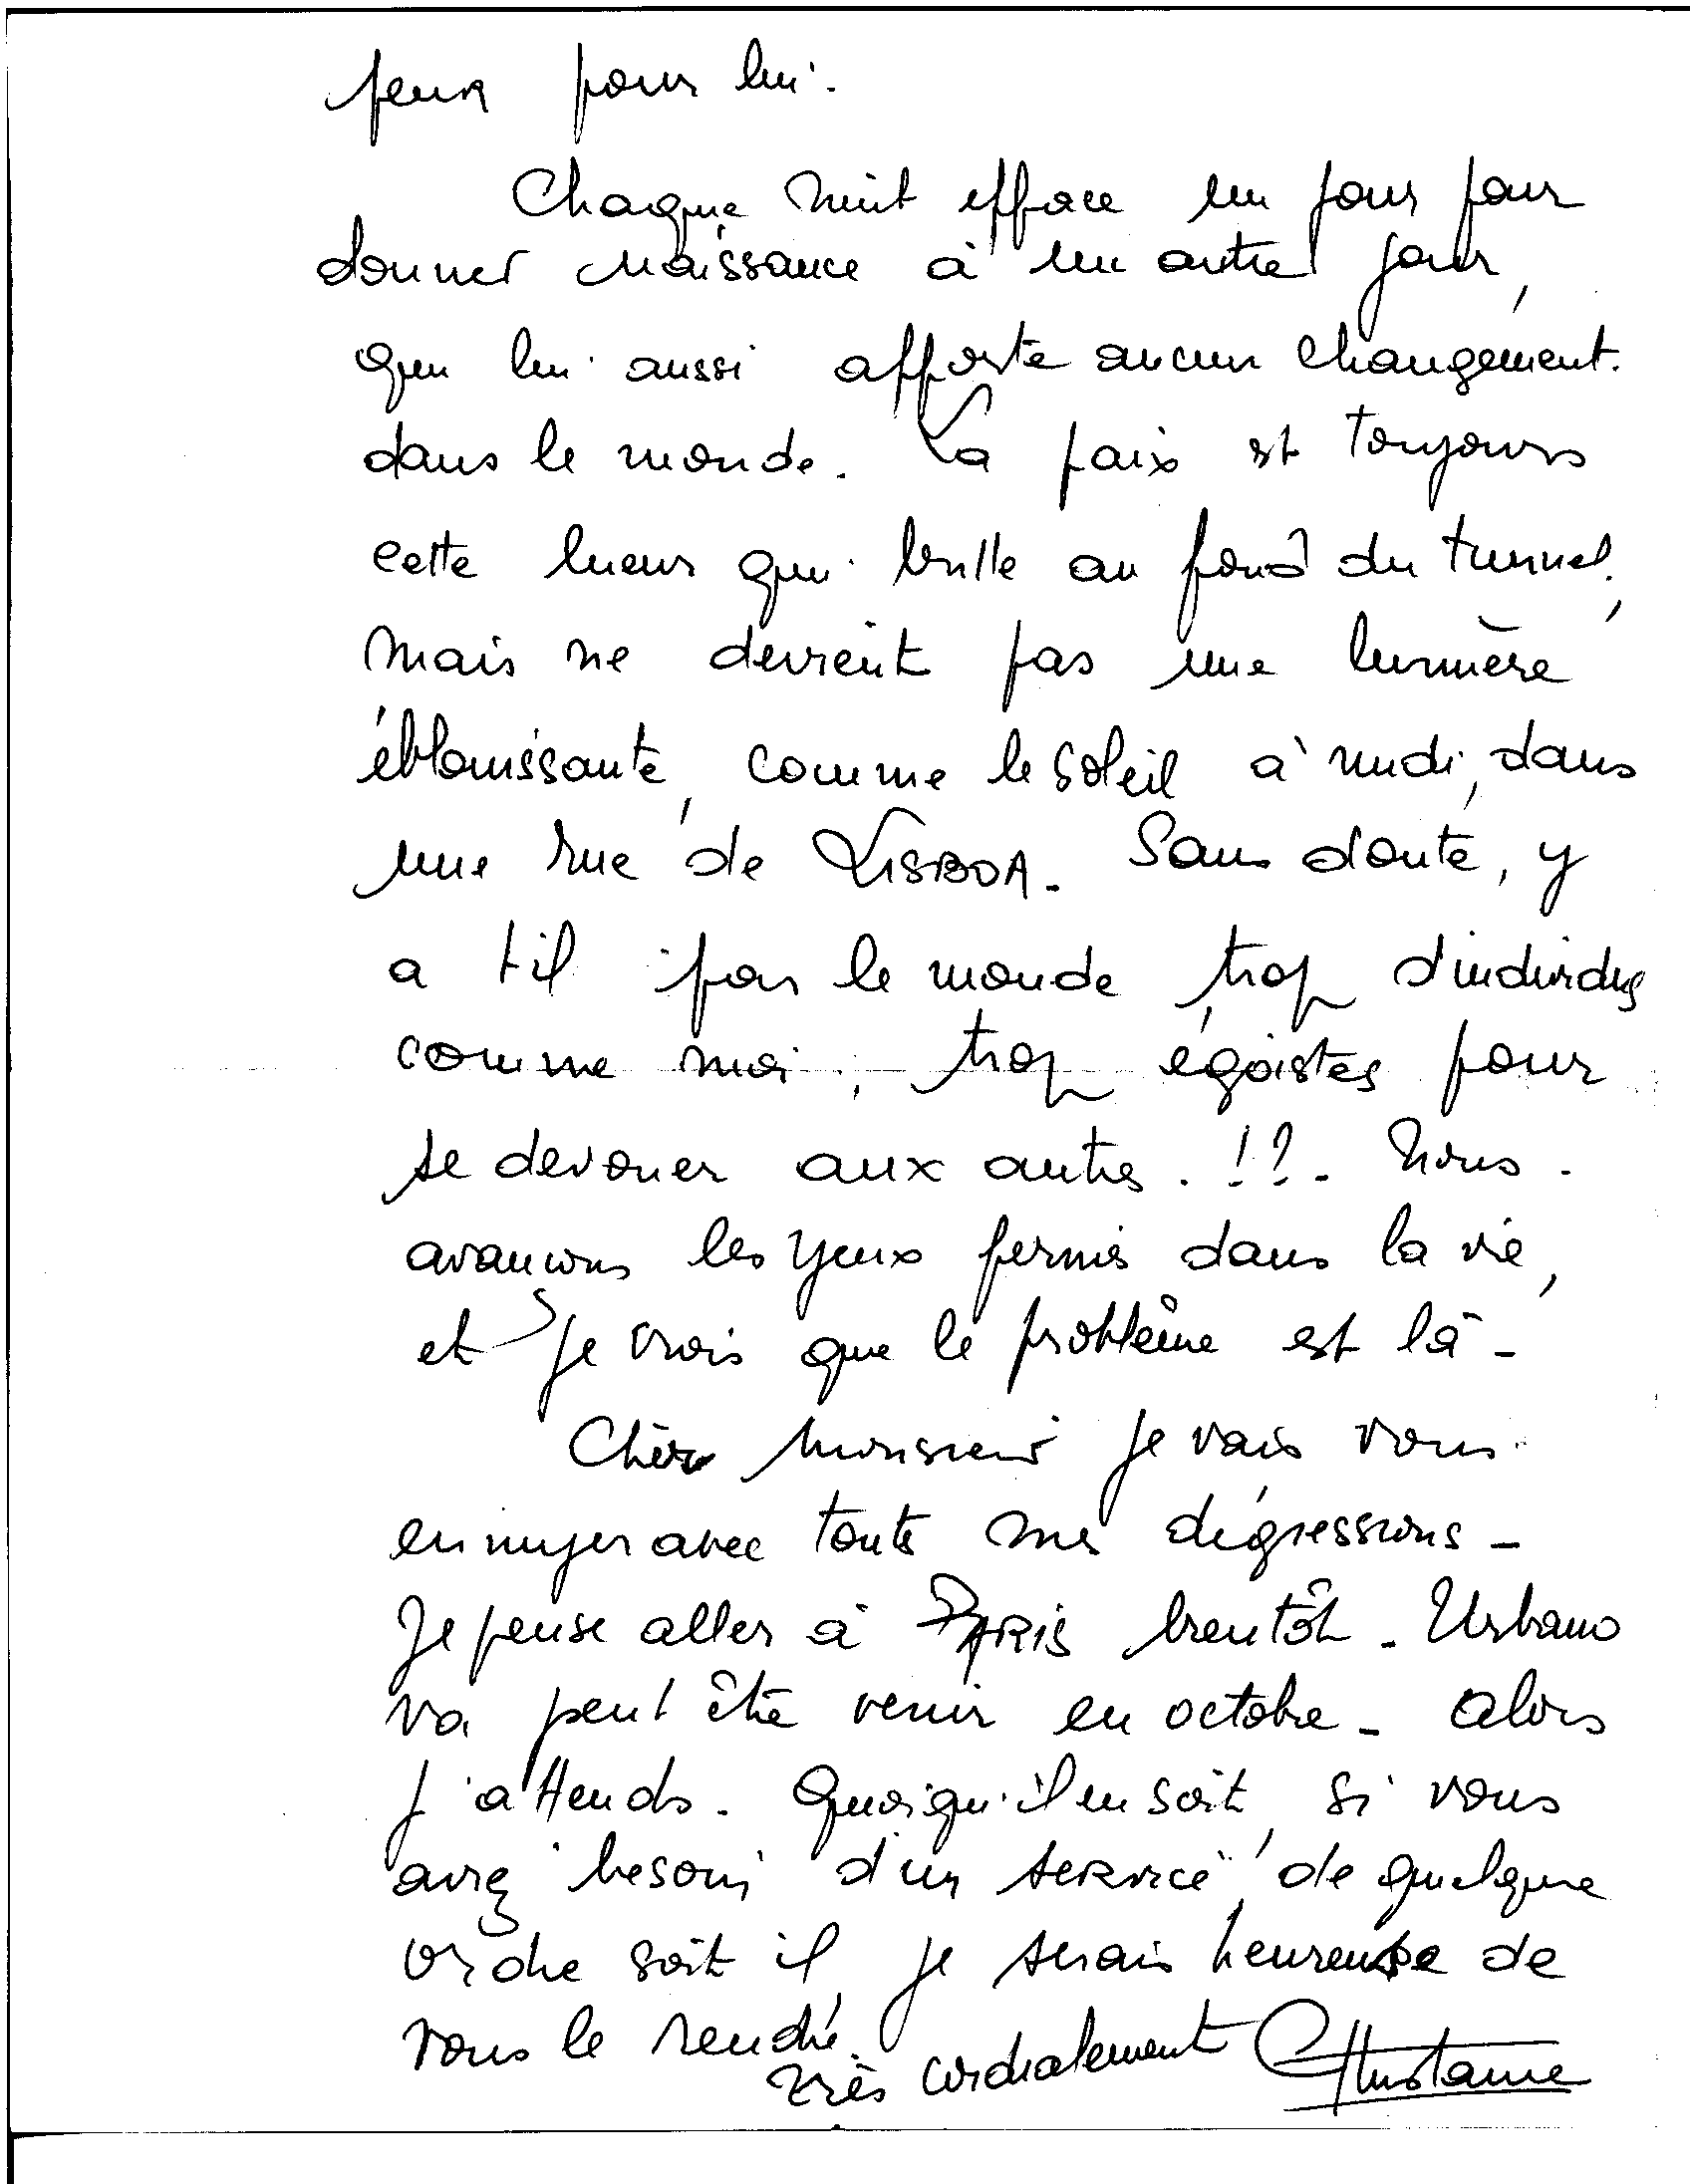 peux pour lui.
Chaque nuit efface un jour pour
donner naissance à un autre jour,
qui lui aussi apporte aucun changement.
dans le monde. La paix est toujours
cette lueur qui brille au fond du tunnel,
mais ne devient pas une lumière
éblouissante, comme le soleil à midi, dans
une rue de LISBOA. Sans doute, y
a t il par le monde, trop d'individus
comme moi, trop égoistes pour
se devouer aux autres. !?. Nous
avançons les yeux fermés dans la vie,
et je crois que le problème est là -
Cher Monsieur je vais vous
ennuyer avec toutes mes dégressions -
Je pense aller à PARIS bientôt - Urbano
va peut être venir en octobre - Alors
j'attends. Quoiqu'il en soit, si vous
avez besoin d'un service, de quelque
ordre soit il, je serais heureuse de
vous le rendre.
Très cordialement